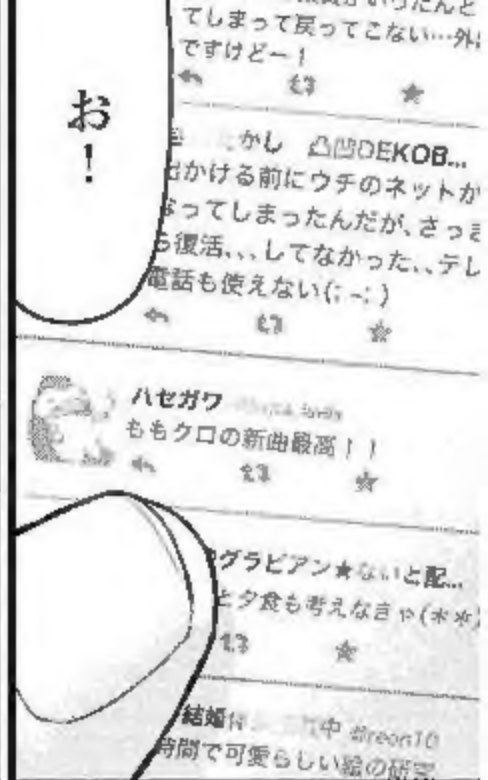 お!
てしまって戻ってこない…外
ですけどー!
かし 凸凹DEKOB...
かける前にウチのネットが
ってしまったんだが、さっき
ら復活、、、してなかった、、テレ
電話も使えない(; -; )
ハセガワ
ももクロの新曲最高!!
グラビアン★ないと配...
と夕食も考えなきゃ(＊＊)
結婚 中 @reon10
時間で可愛らしい絵の研究